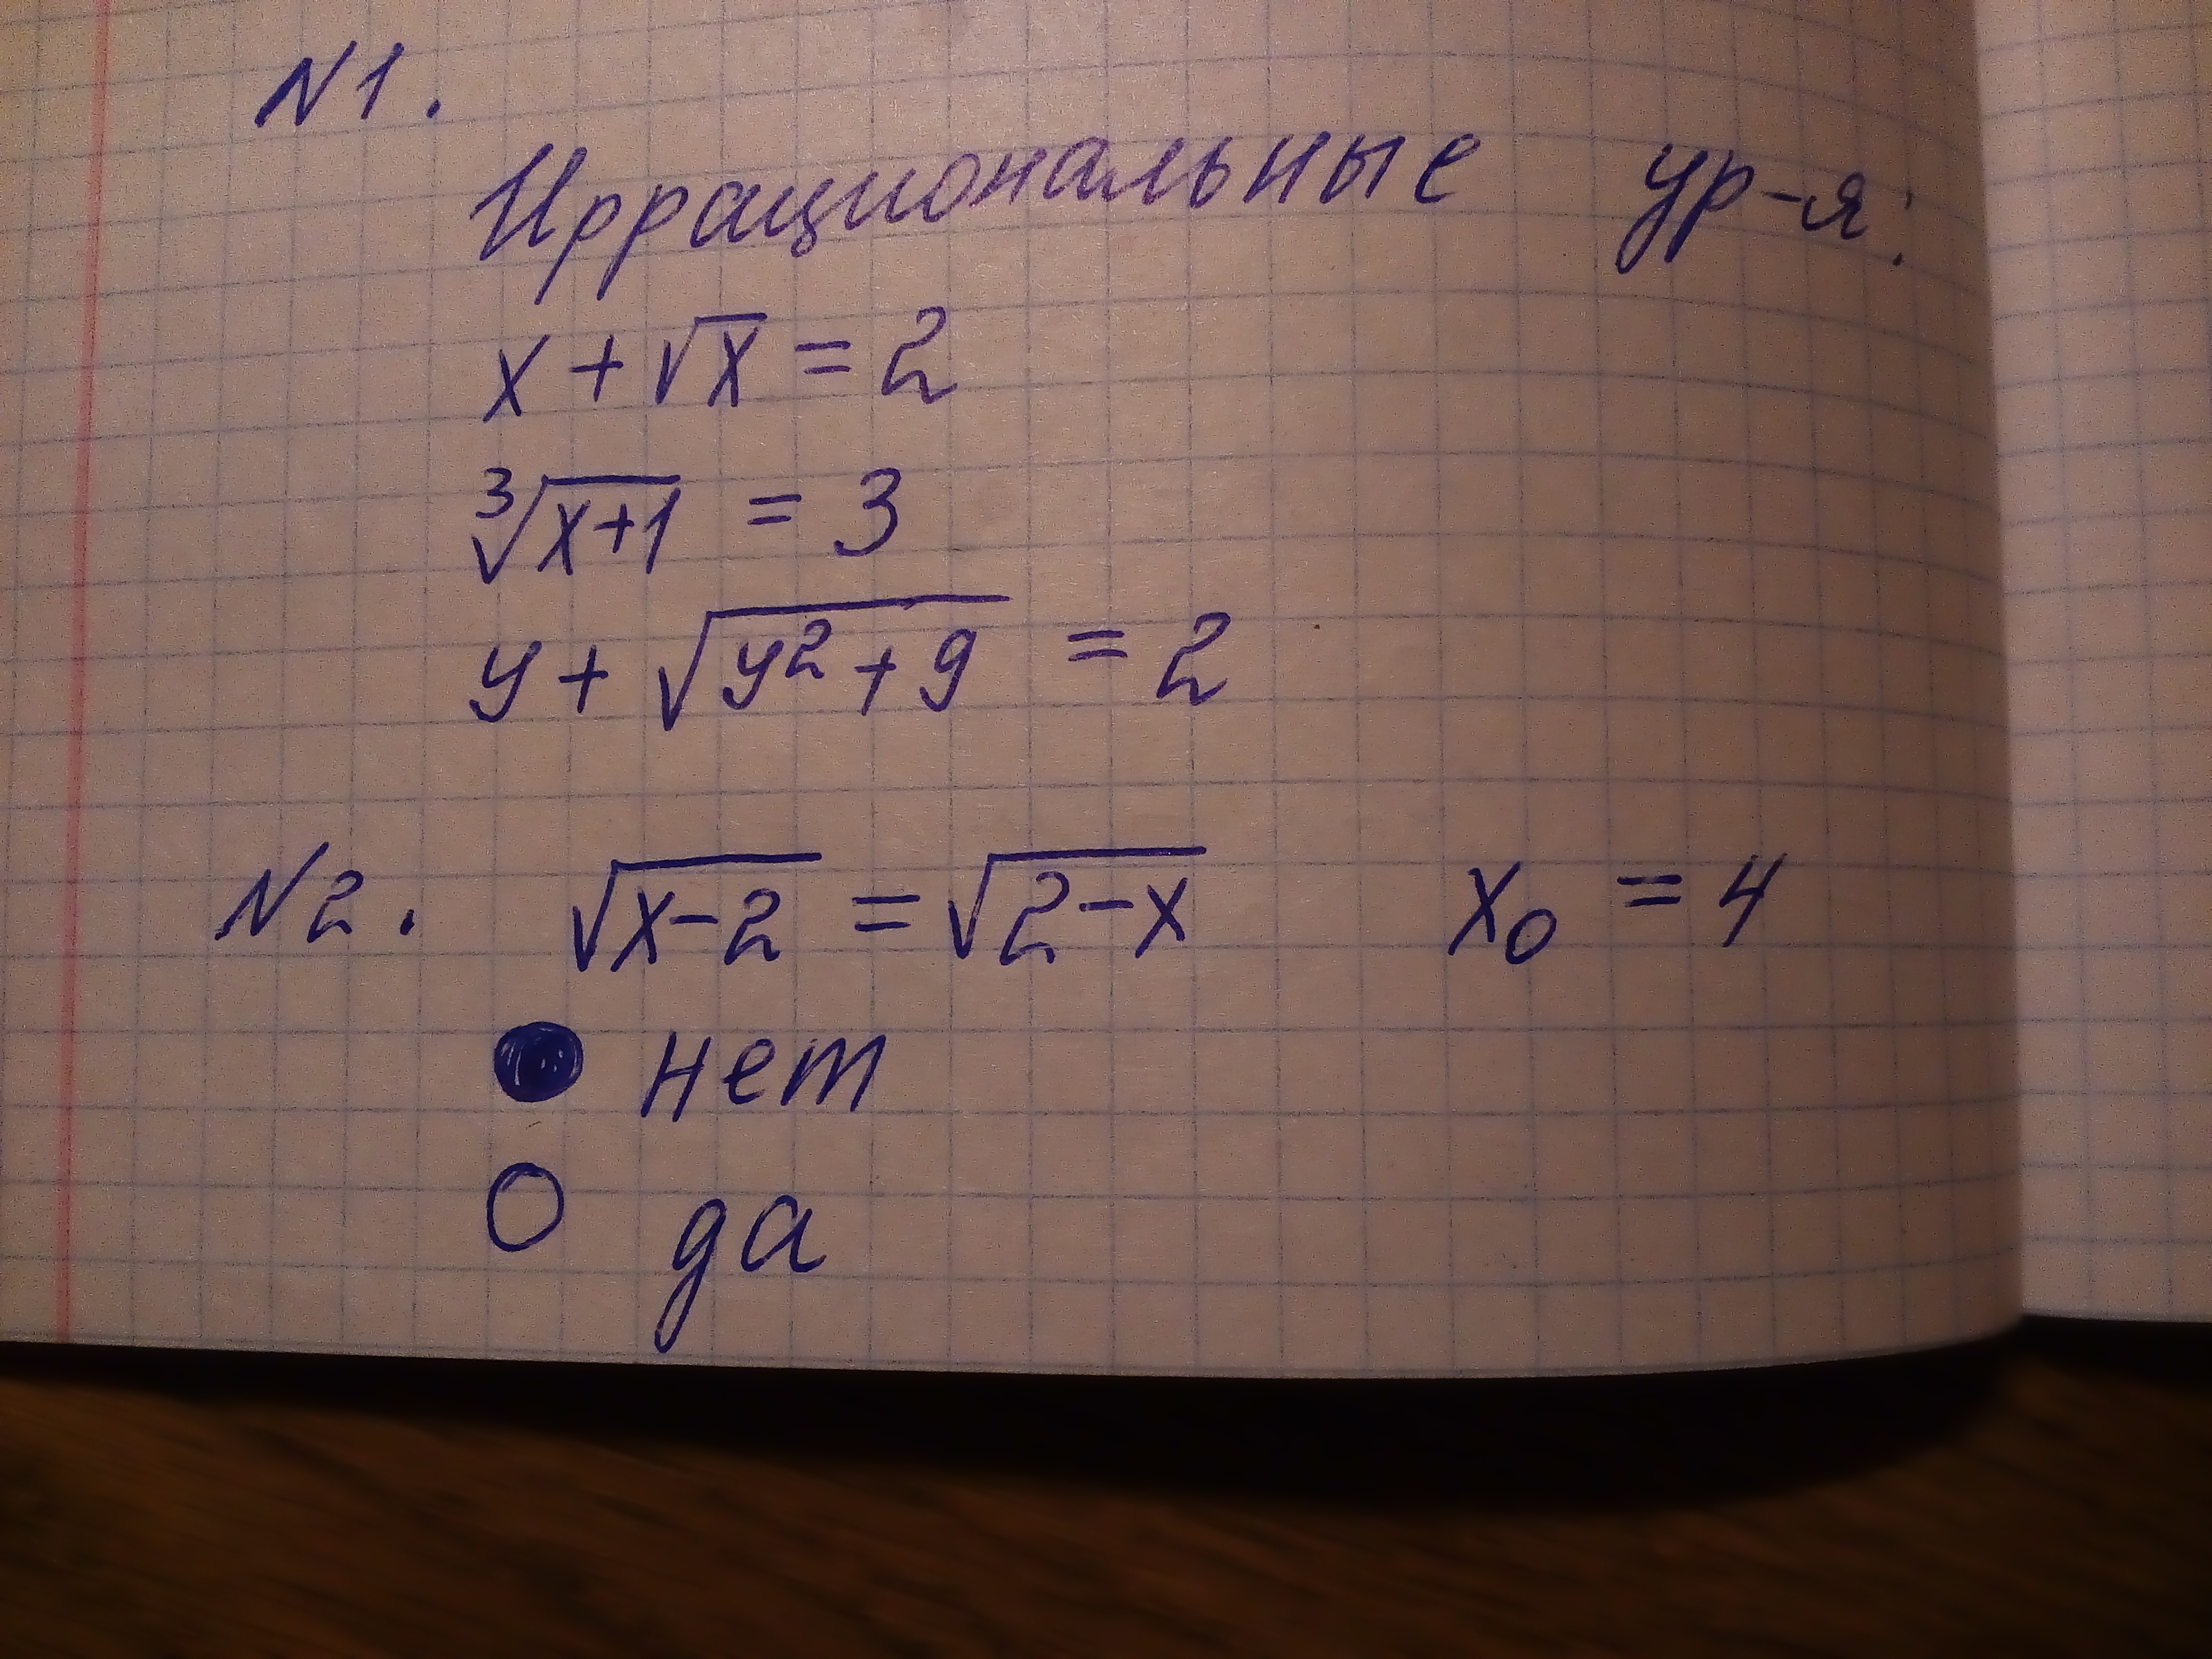 N1.
Иррациональные ур-я:
x + √x = 2
³√x+1 = 3
y + √y² + 9 = 2
N2. √x-2 = √2-x x₀ = 4
нет
да